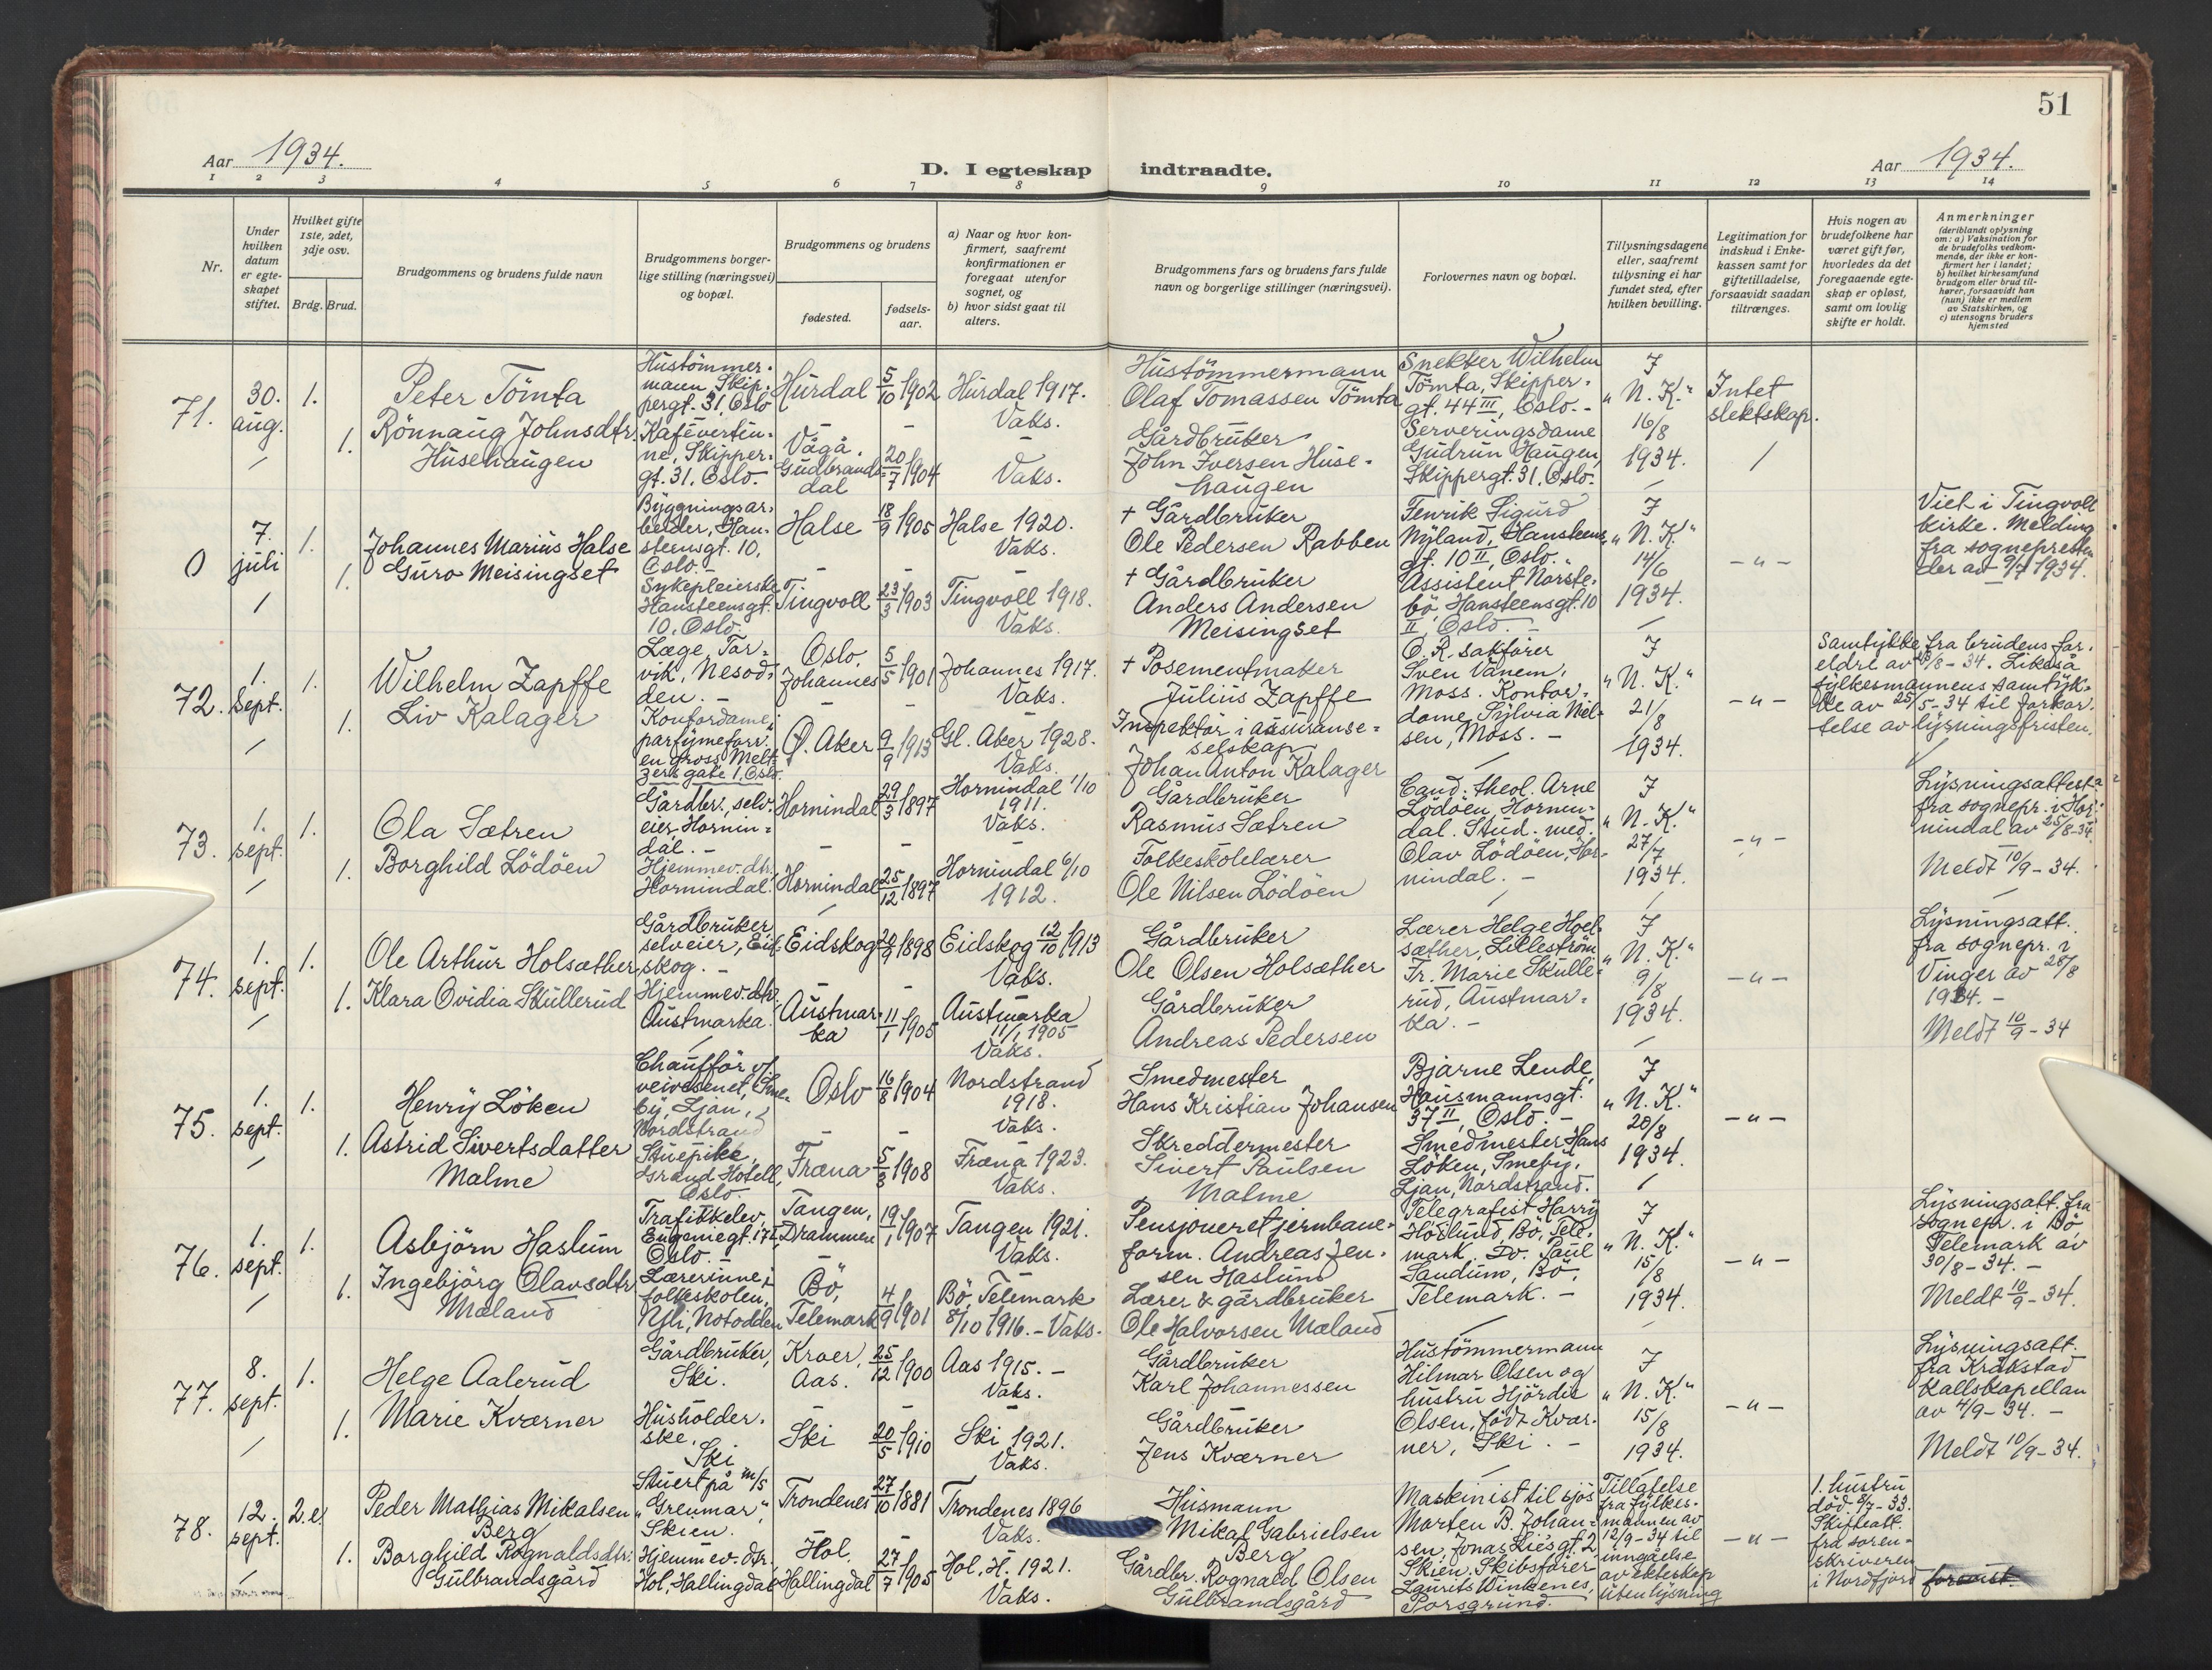 51
Aar 1934.
D. I egteskap indtraadte.
Aar 1934.
1 2 3 4 5 6 7 8 9 10 11 12 13 14
Nr.
Under
hvilken
datum
er egte-
skapet
stiftet.
Hvilket gifte
1ste, 2det,
3dje osv.
Brdg. Brud.
Brudgommens og brudens fulde navn
Brudgommens borger-
lige stilling (næringsvei)
og bopæl.
Brudgommens og brudens
fødested.
fødsels-
aar.
a) Naar og hvor kon-
firmert, saafremt
konfirmationen er
foregaat utenfor
sognet, og
b) hvor sidst gaat til
alters.
Brudgommens fars og brudens fars fulde
navn og borgerlige stillinger (næringsvei).
Forlovernes navn og bopæl.
Tillysningsdagene
eller, saafremt
tillysning ei har
fundet sted, efter
hvilken bevilling.
Legitimation for
indskud i Enke-
kassen samt for
giftetilladelse,
forsaavidt saadan
tiltrænges.
Hvis nogen av
brudefolkene har
været gift før,
hvorledes da det
foregaaende egte-
skap er opløst,
samt om lovlig
skifte er holdt.
Anmerkninger
(deriblandt oplysning
om: a) Vaksination for
de brudefolks vedkom-
mende, der ikke er kon-
firmert her i landet;
b) hvilket kirkesamfund
brudgom eller brud til-
hører, forsaavidt han
(hun) ikke er medlem
av Statskirken, og
c) utensogns bruders
hjemsted
71.
30.
aug.
1.
1.
Peter Tömta
Rönnaug Johnsdtr.
Husehaugen
Hustömmer-
mann, Skip-
pergt. 31, Oslo
Kafévertin-
ne, Skipper-
gt. 31. Oslo.-
Hurdal 5/10 1902
Vågå.
Gudbrands-
dal 20/7 1904
Hurdal 1917.
Vaks.
Vaks.
Hustömmermann
Olaf Tomassen Tömta
Gårdbruker
John Iversen Huse-
haugen
Snekker Wilhelm
Tömta, Skipper-
gt. 44 III, Oslo.-
Serveringsdame
Gudrun Haugen,
Skippergt. 31. Oslo.
I
"N. K."
16/8
1934.
Intet
slektskap.
0
7.
juli
1.
1.
Johannes Marius Halse
Guro Meisingset
Bygningsar-
beider, Han-
steensgt. 10,
Oslo.-
Sykepleierske
Hansteensgt.
10. Oslo.-
Halse 18/9 1905
Tingvoll 23/3 1903
Halse 1920.
Vaks.
Tingvoll 1918.
Vaks.
+ Gårdbruker
Ole Pedersen Rabben
+ Gårdbruker
Anders Andersen
Meisingset
Fenrik Sigurd
Nyland, Hansteens-
gt. 10 II, Oslo.
Assistent Norste-
bö, Hansteensgt. 10
II, Oslo.-
I
"N. K."
14/6
1934.
-"-
Viet i Tingvoll
kirke. Melding
fra sognepresten
der av 9/7 1934.
72.
1.
Sept.
1.
1.
Wilhelm Zapffe
Liv Kalager
Læge, Tor-
vik, Nesod-
den.-
Kontordame i
parfymeforr.
en gros, Melt-
zers gate 1. Oslo.
Oslo,
Johannes 5/5 1901
Ö. Aker 9/9 1913
Johannes 1917.
Vaks.
Gl. Aker 1928.
Vaks.
+ Posementmaker
Julius Zapffe
Inspektör i assuranse-
selskap
Johan Anton Kalager
O. R. sakförer
Sven Vanem,
Moss. Kontor-
dame Sylvia Niel-
sen, Moss.-
I
"N. K."
21/8
1934.
-"-
Samtykke fra brudens for-
eldre av /8-34. Likeså
fylkesmannens samtyk-
ke av 25/5-34 til forkor-
telse av lysningsfristen.
73.
1.
sept.
1.
1.
Ola Sætren
Borghild Lödöen
Gårdbr., selv-
eier, Hornin-
dal.-
Hjemmev. dtr,
Hornindal.
Hornindal 29/3 1897
Hornindal 25/12 1897
Hornindal 1/10
1911.
Vaks.
Hornindal 6/10
1912.
Gårdbruker
Rasmus Sætren
Folkeskolelærer
Ole Nilsen Lödöen
Cand. theol. Arne
Lödöen, Hornin-
dal. Stud. med.
Olav Lödöen, Hor-
nindal.-
I
"N. K."
27/7
1934.
-"-
Lysningsattest
fra sognepr. i Hor-
nindal av 25/8-34
Meldt 10/9-34.
74.
1.
sept.
1.
1.
Ole Arthur Holsæther
Klara Ovidia Skullerud
Gårdbruker,
selveier, Eid-
skog.-
Hjemmev. dtr.
Austmarka.
Eidskog 20/9 1898
Austmar-
ka 11/1 1905
Eidskog 12/10 1913
Vaks.
Austmarka
11/1 1905
Vaks.
Gårdbruker
Ole Olsen Holsæther
Gårdbruker
Andreas Pedersen
Lærer Helge Hol-
sæther, Lilleström
Fr. Marie Skulle-
rud, Austmar-
ka.-
I
"N. K."
9/8
1934.
-"-
Lysningsatt.
fra sognepr. i
Vinger av 28/8
1934.-
Meldt 10/9-34
75.
1.
sept.
1.
1.
Henry Löken
Astrid Sivertsdatter
Malme
Chaufför v/
veivesenet, Sme-
by, Ljan,
Nordstrand
Stuepike,
Grand Hotell,
Oslo.
Oslo 16/8 1904
Fræna 5/3 1908
Nordstrand
1918.
Vaks.
Fræna 1923.
Vaks.
Smedmester
Hans Kristian Johansen
Skreddermester
Sivert Paulsen
Malme
Bjarne Lende,
Hausmannsgt.
37 II, Oslo.-
Smedmester Hans
Löken, Smeby,
Ljan, Nordstrand.
I
"N. K."
20/8
1934.
-"-
76.
1.
sept.
1.
1.
Asbjörn Haslum
Ingebjörg Olavsdtr
Mæland
Trafikkelev,
Eugeniegt. 17 I,
Oslo.-
Lærerinne i
folkeskolen,
Yli, Notodden
Tangen,
Drammen 19/1 1907
Bö,
Telemark 4/9 1901
Tangen 1921.
Vaks.
Bö, Telemark
8/10 1916.-Vaks.
Pensjonert jernbane-
form. Andreas Jen-
sen Haslum
Lærer & gårdbruker
Ole Halvorsen Mæland
Telegrafist Harry
Hödlund, Bö, Tele-
mark. Do. Paul
Sandum, Bö,
Telemark.-
I
"N. K."
15/8
1934.
-"-
Lysningsatt. fra
sognepr. i Bö
Telemark av
30/8-34.-
Meldt 10/9-34.
77.
8.
sept.
1.
1.
Helge Aalerud
Marie Kværner
Gårdbruker,
Ski.
Husholder-
ske,
Ski
Kroer,
Aas. 25/12 1900
Ski 20/5 1910
Aas 1915.-
Vaks.
Ski 1921.
Vaks.
Gårdbruker
Karl Johannessen
Gårdbruker
Jens Kværner
Hustömmermann
Hilmar Olsen og
hustru Hjördis
Olsen, född Kvær-
ner, Ski.-
I
"N. K."
15/8
1934.
-"-
Lysningsatt.
fra Kråkstad
kallskapellan
av 4/9-34.-
Meldt 10/9-34.
78.
12.
sept.
2.e.
1.
Peder Mathias Mikalsen
Berg
Borghild Rognaldsdtr.
Gulbrandsgård
Stuert på m/s
"Grenmar",
Skien.
Hjemmev. dtr.
Hol, Hallingdal
Trondenes 27/10 1881
Hol,
Hallingdal 27/7 1905
Trondenes 1896
Vaks.
Hol, H. 1921.
Vaks.
Husmann
Mikal Gabrielsen
Berg
Gårdbr. Rognald Olsen
Gulbrandsgård
Maskinist til sjös
Morten B. Johan-
sen, Jonas Liesgt. 2
Skien. Skibsförer
Laurits Winkenes,
Porsgrund.
Tillatelse
fra fylkes-
mannen av
12/9-34 til
inngåelse
av ekteskap
uten lysning
-"-
1. hustru
död 8/7-33.
Skifteatt.
fra soren-
skriveren
i Nordfjord